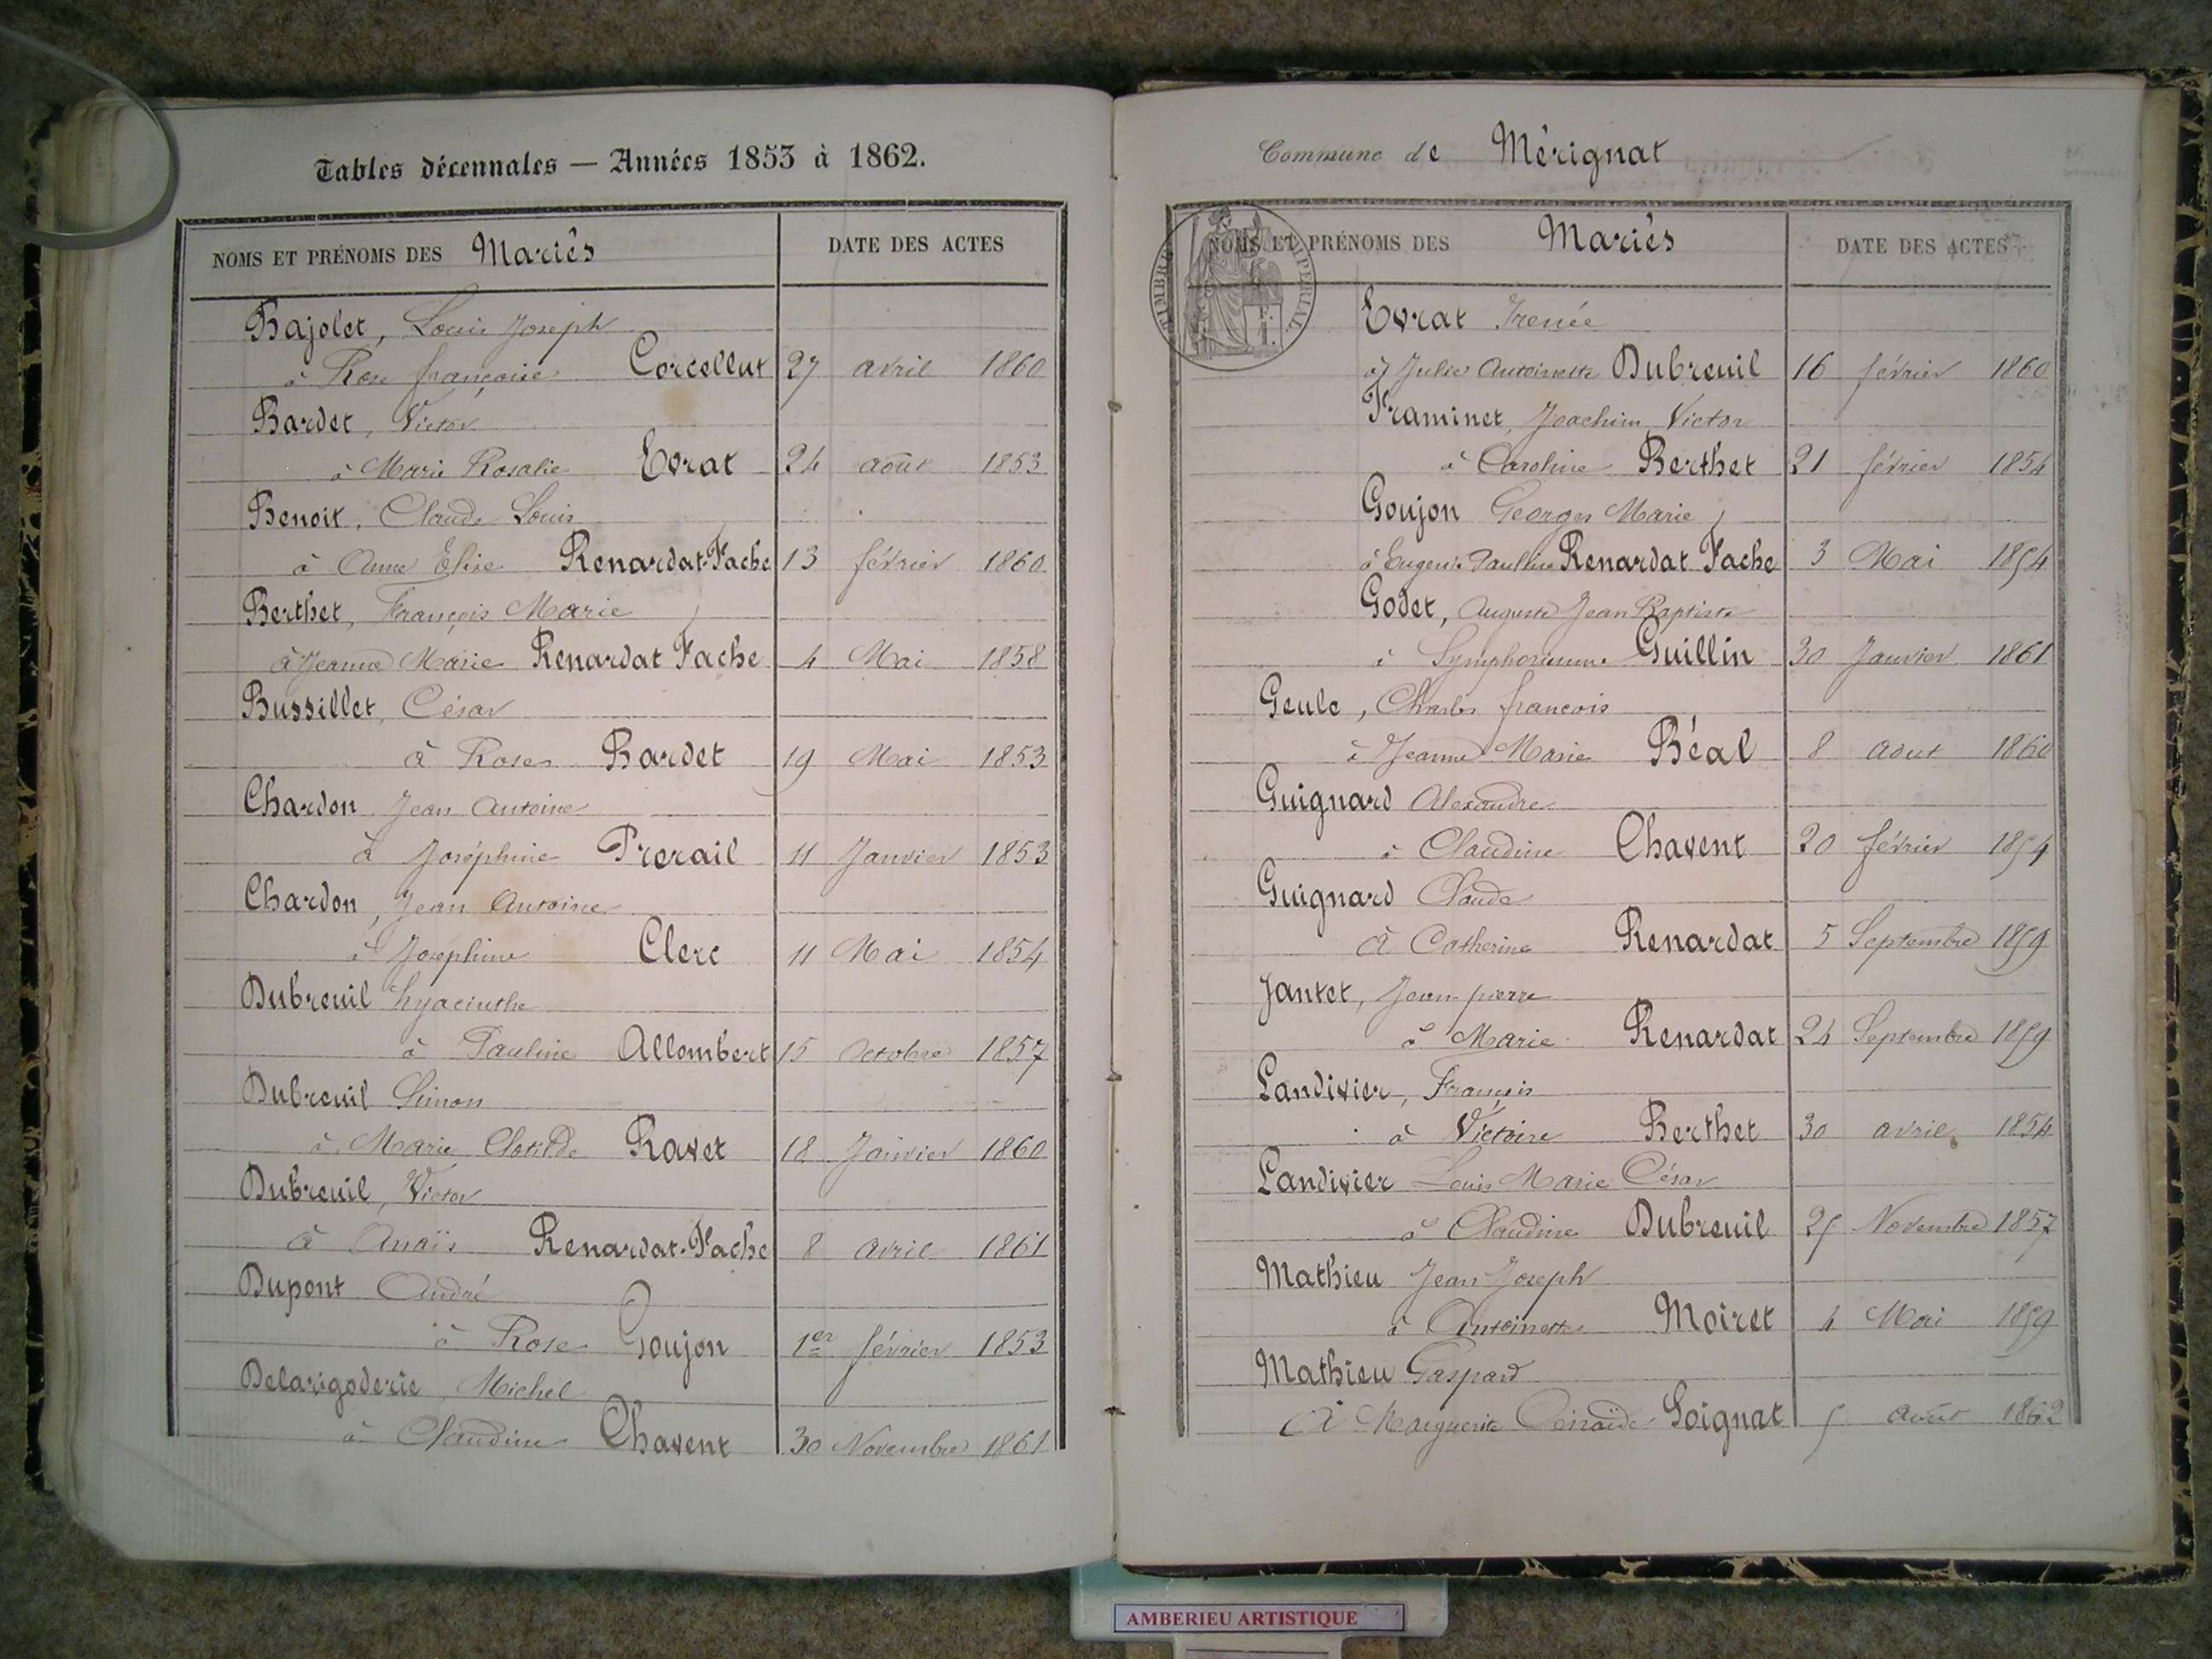 Tables décennales — Années 1853 à 1862.
NOMS ET PRÉNOMS DES Mariés DATE DES ACTES
Bajolet, Louis Joseph
à Rose françoise Corcellut 27 avril 1860
Bardet, Victor
à Marie Rosalie Evrat 24 août 1853
Benoit, Claude Louis
à Anne Elise Renardat-Fache 13 février 1860
Berthet, François Marie
à Jeanne Marie Renardat Fache 4 Mai 1858
Bussillet, César
à Rose Bardet 19 Mai 1853
Chardon Jean Antoine
à Joséphine 11 Janvier 1853
Chardon, Jean Antoine
à Josephine Clerc 11 Mai 1854
Dubreuil hyacinthe
à Pauline Allombert 15 Octobre 1857
Dubreuil Simon
à Marie Clotilde Ravet 18 Janvier 1860
Dubreuil, Victor
à Anaïs Renardat-Fache 8 avril 1861
Dupont André
à Rose Goujon 1er février 1853
Delarigoderie, Michel
à Claudine Chavent 30 Novembre 1861
Commune de Mérignat
TIMBRE IMPERIAL
NOMS ET PRÉNOMS DES Mariés DATE DES ACTES
Evrat Irenée
à Julie Antoinette Dubreuil 16 février 1860
Framinet, Joachim Victor
à Caroline Berthet 21 février 1854
Goujon Georges Marie
à Eugenie Pauline Renardat Fache 3 Mai 1854
Godet, Auguste Jean Baptiste
à Symphorienne Guillin 30 Janvier 1861
Geule, Charles françois
à Jeanne Marie Béal 8 aout 1860
Guignard Alexandre
à Claudine Chavent 20 février 1854
Guignard Claude
à Catherine Renardat 5 Septembre 1859
Jantet, Jean pierre
à Marie Renardat 24 Septembre 1859
Landivier, François
à Victoire Berthet 30 avril 1854
Landivier Louis Marie César
à Claudine Dubreuil 25 Novembre 1857
Mathieu Jean Joseph
à Antoinette Moiret 4 Mai 1859
Mathieu Gaspard
à Marguerite Soignat 5 août 1862
AMBERIEU ARTISTIQUE